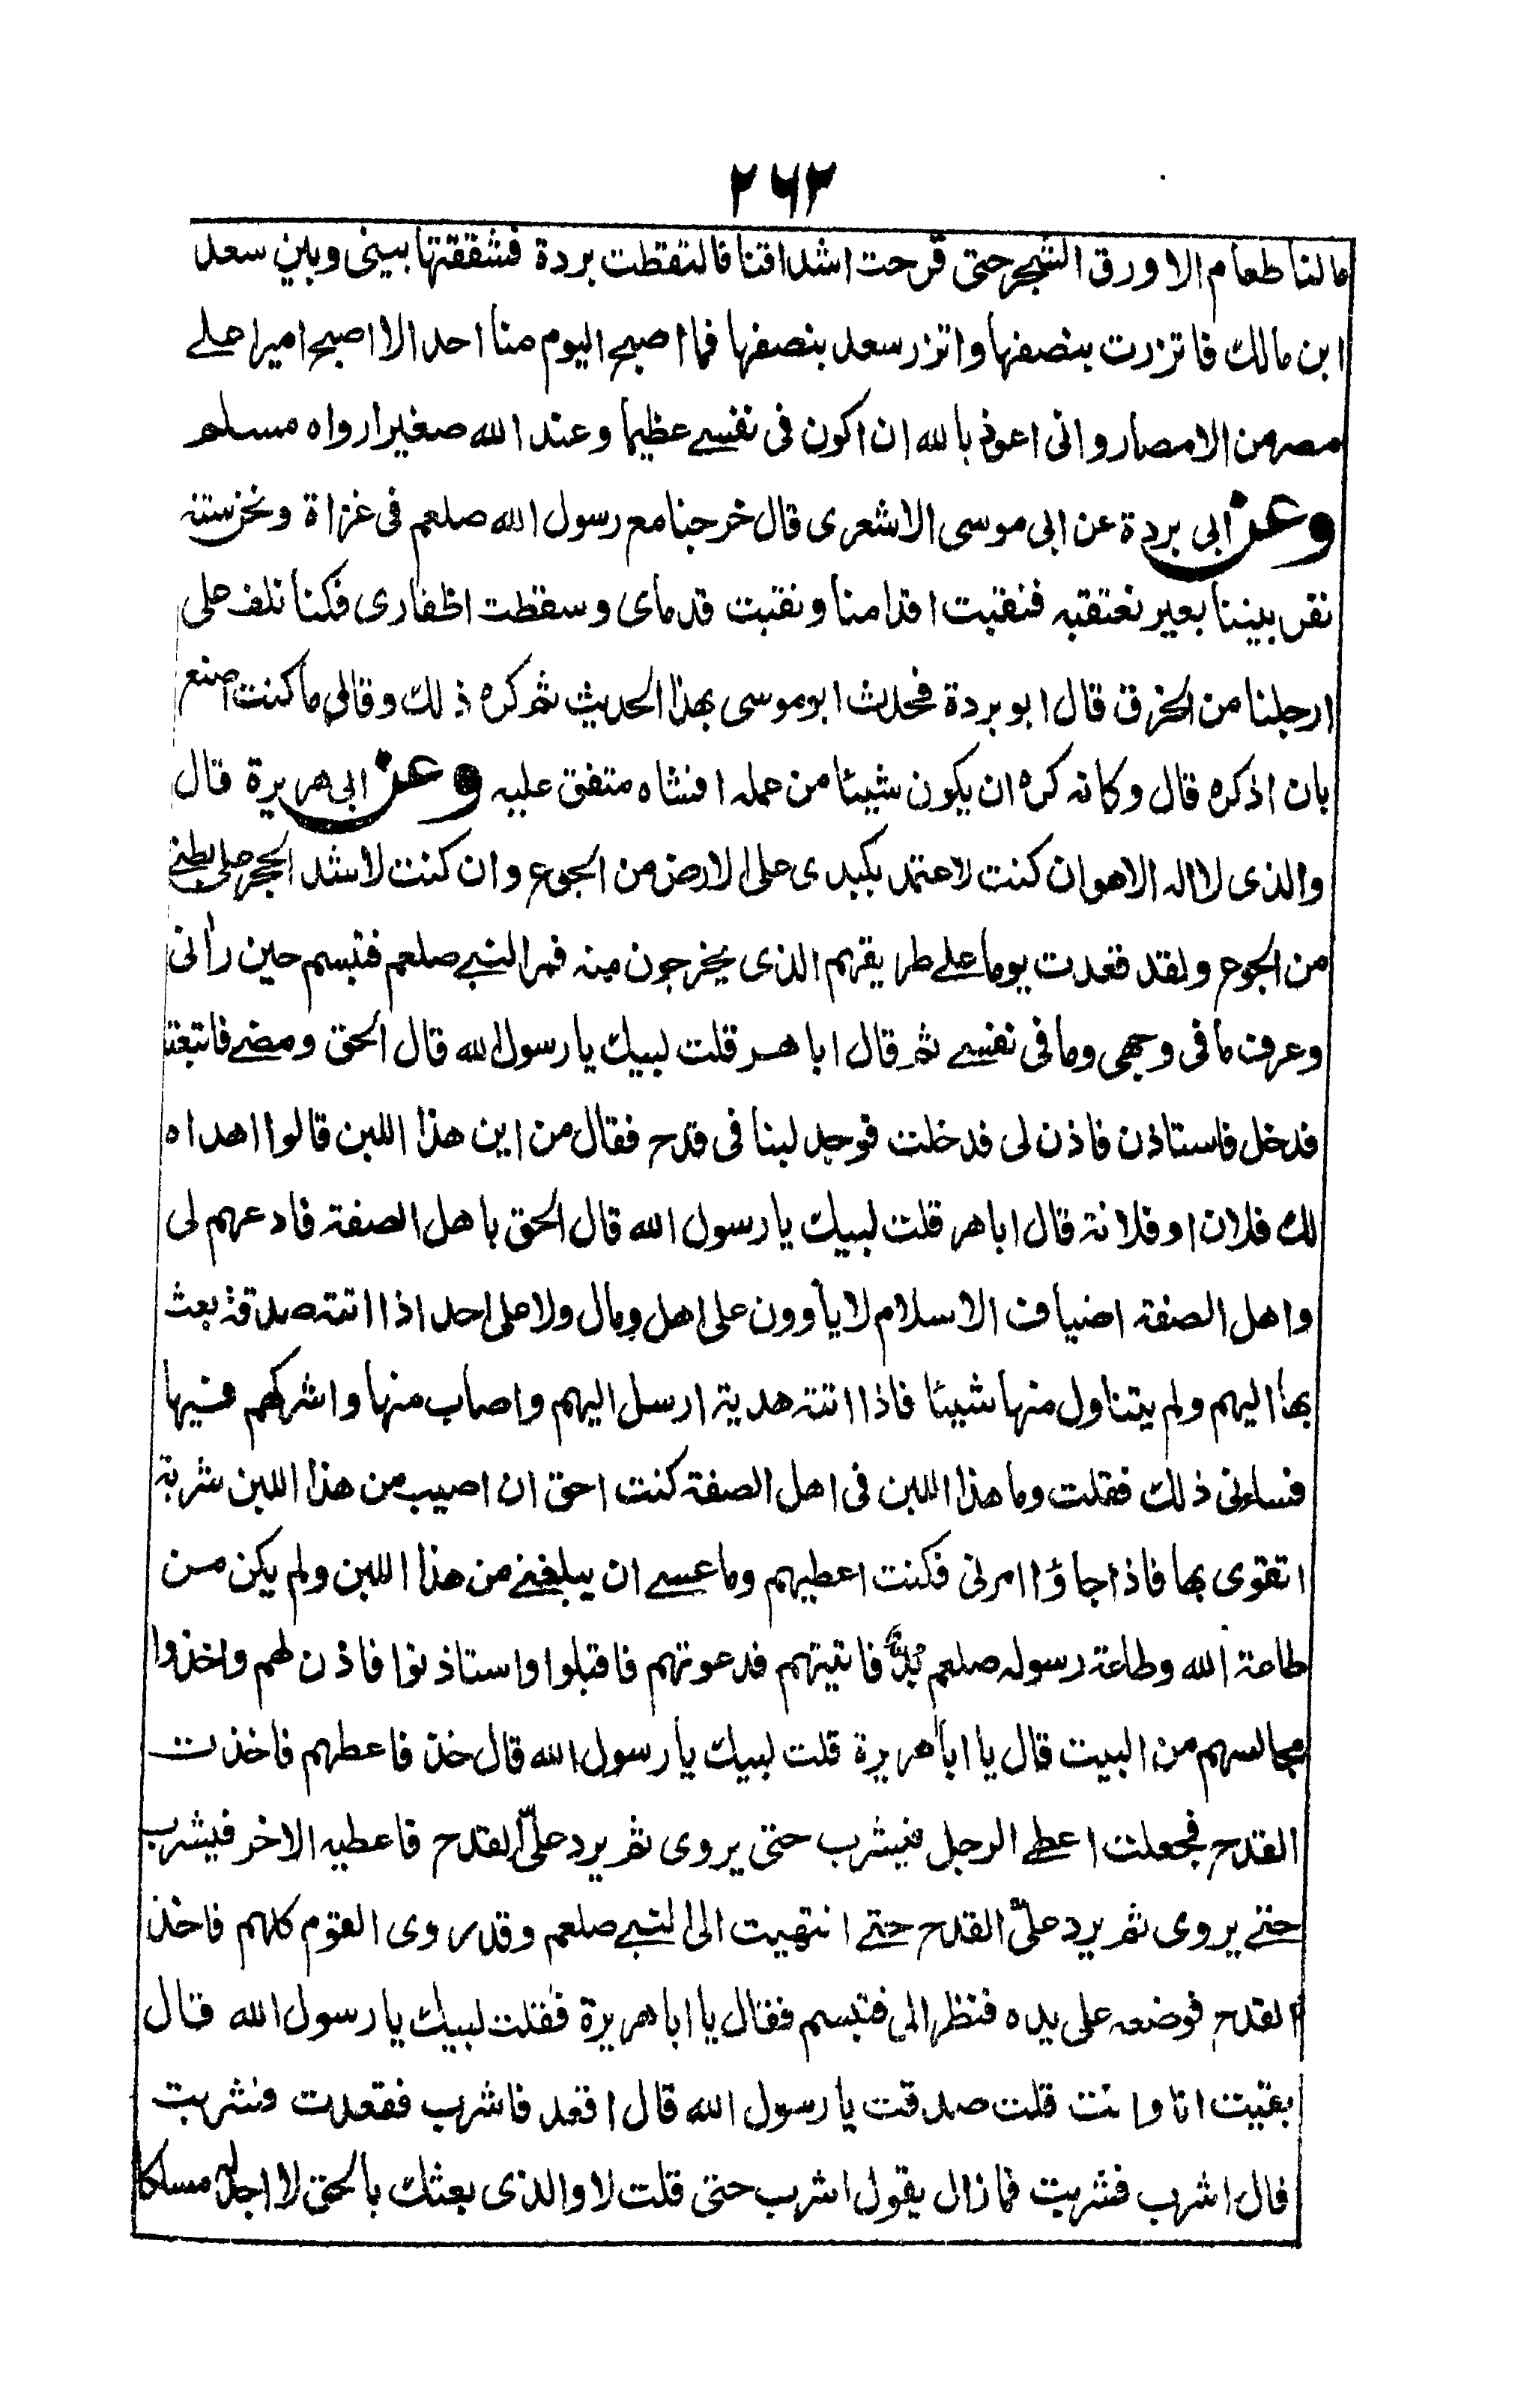 ٢٦٢
مالنا طعام الا ورق الشجر حتى قرحت اشداقنا فالتقطت بردة فشققتها بينى وبين سعد
ابن مالك فاتزرت بنصفها واتزر سعد بنصفها فما اصبح اليوم منا احد الا اصبح اميرا على
مصر من الامصار وانى اعوذ بالله ان اكون فى نفسے عظيما وعند الله صغيرا رواه مسلم
وعن ابى بردة عن ابى موسى الاشعرى قال خرجنا مع رسول الله صلعم فى غزاة ونحن ستة
نفر بيننا بعير نعتقبه فنقبت اقدامنا ونقبت قدماى وسقطت اظفارى فكنا نلف على
ارجلنا من الخرق قال ابو بردة فحدث ابو موسى بهذا الحديث ثم كره ذلك وقال ما كنت اصنع
بان اذكره قال وكانه كره ان يكون شيئا من عمله افشاه متفق عليه وعن ابى هريرة قال
والذى لا اله الا هو ان كنت لاعتمد بكبدى على الارض من الجوع وان كنت لاشد الحجر على بطنے
من الجوع ولقد قعدت يوما علے طريقهم الذى يخرجون منه فمر النبے صلعم فتبسم حين رأنى
وعرف ما فى وجهى وما فى نفسے ثم قال ابا هر قلت لبيك يا رسول الله قال الحق ومضے فاتبعته
فدخل فاستاذن فاذن لى فدخلت فوجد لبنا فى قدح فقال من اين هذا اللبن قالوا اهداه
لك فلان او فلانة قال ابا هر قلت لبيك يا رسول الله قال الحق باهل الصفة فادعهم لى
واهل الصفة اضياف الاسلام لا يأوون على اهل ومال ولا على احد اذا اتته صدقة بعث
بها اليهم ولم يتناول منها شيئا فاذا اتته هدية ارسل اليهم واصاب منها واشركهم فيها
فساءنى ذلك فقلت وما هذا اللبن فى اهل الصفة كنت احق ان اصيب من هذا اللبن شربة
اتقوى بها فاذا جاؤا امرنى فكنت اعطيهم وما عسے ان يبلغنے من هذا اللبن ولم يكن من
طاعة الله وطاعة رسوله صلعم بدّ فاتيتهم فدعوتهم فاقبلوا واستاذنوا فاذن لهم واخذوا
مجالسهم من البيت قال يا ابا هريرة قلت لبيك يا رسول الله قال خذ فاعطهم فاخذت
القدح فجعلت اعطے الرجل فيشرب حتى يروى ثم يرد علىّ القدح فاعطيه الاخر فيشرب
حتے يروى ثم يرد علىّ القدح حتے انتهيت الى النبے صلعم وقد روى القوم كلهم فاخذ
القدح فوضعه على يده فنظر الى فتبسم فقال يا ابا هريرة فقلت لبيك يا رسول الله قال
بقيت انا وانت قلت صدقت يا رسول الله قال اقعد فاشرب فقعدت فشربت
قال اشرب فشربت فما زال يقول اشرب حتى قلت لا والذى بعثك بالحق لا اجد له مسلكا